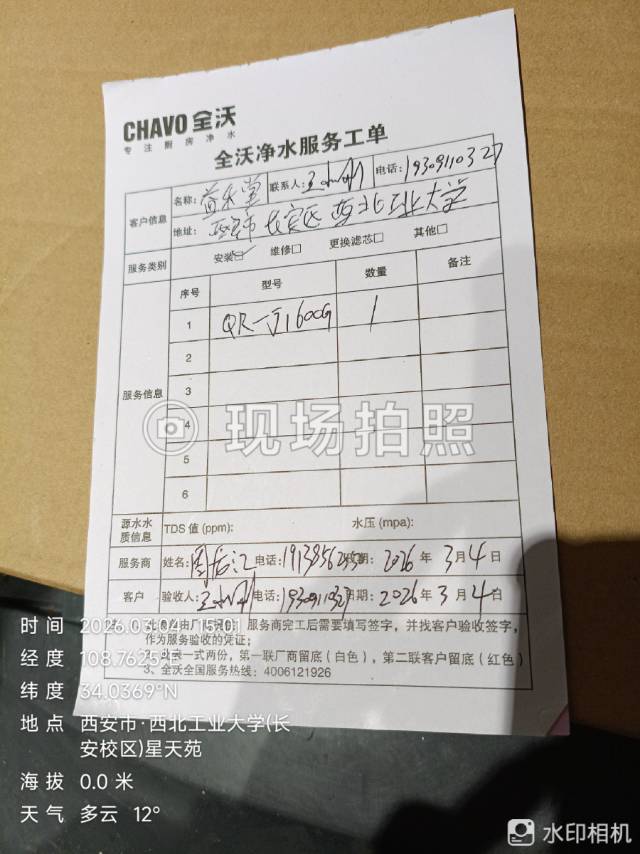 CHAVO 全沃
专注厨房净水
全沃净水服务工单
客户信息
名称: 益禾堂 联系人: 王 电话: 19309110327
地址: 西安市 长安区 西北工业大学
服务类别 安装☑ 维修□ 更换滤芯□ 其他□
服务信息
序号 型号 数量 备注
1 1
2
3
4
5
6
现场拍照
源水水质信息 TDS 值 (ppm): 水压 (mpa):
服务商 姓名: 周 电话: 日期: 2026 年 3 月 4 日
客户 验收人: 王 电话: 19309110327 日期: 2026 年 3 月 4 日
服务商完工后需要填写签字,并找客户验收签字,
作为服务验收的凭证;
2、此表一式两份,第一联厂商留底(白色),第二联客户留底(红色)
3、全沃全国服务热线:4006121926
时间 2026.03.04 15:01
经度 108.7625°E
纬度 34.0369°N
地点 西安市·西北工业大学(长
安校区)星天苑
海拔 0.0 米
天气 多云 12°
水印相机